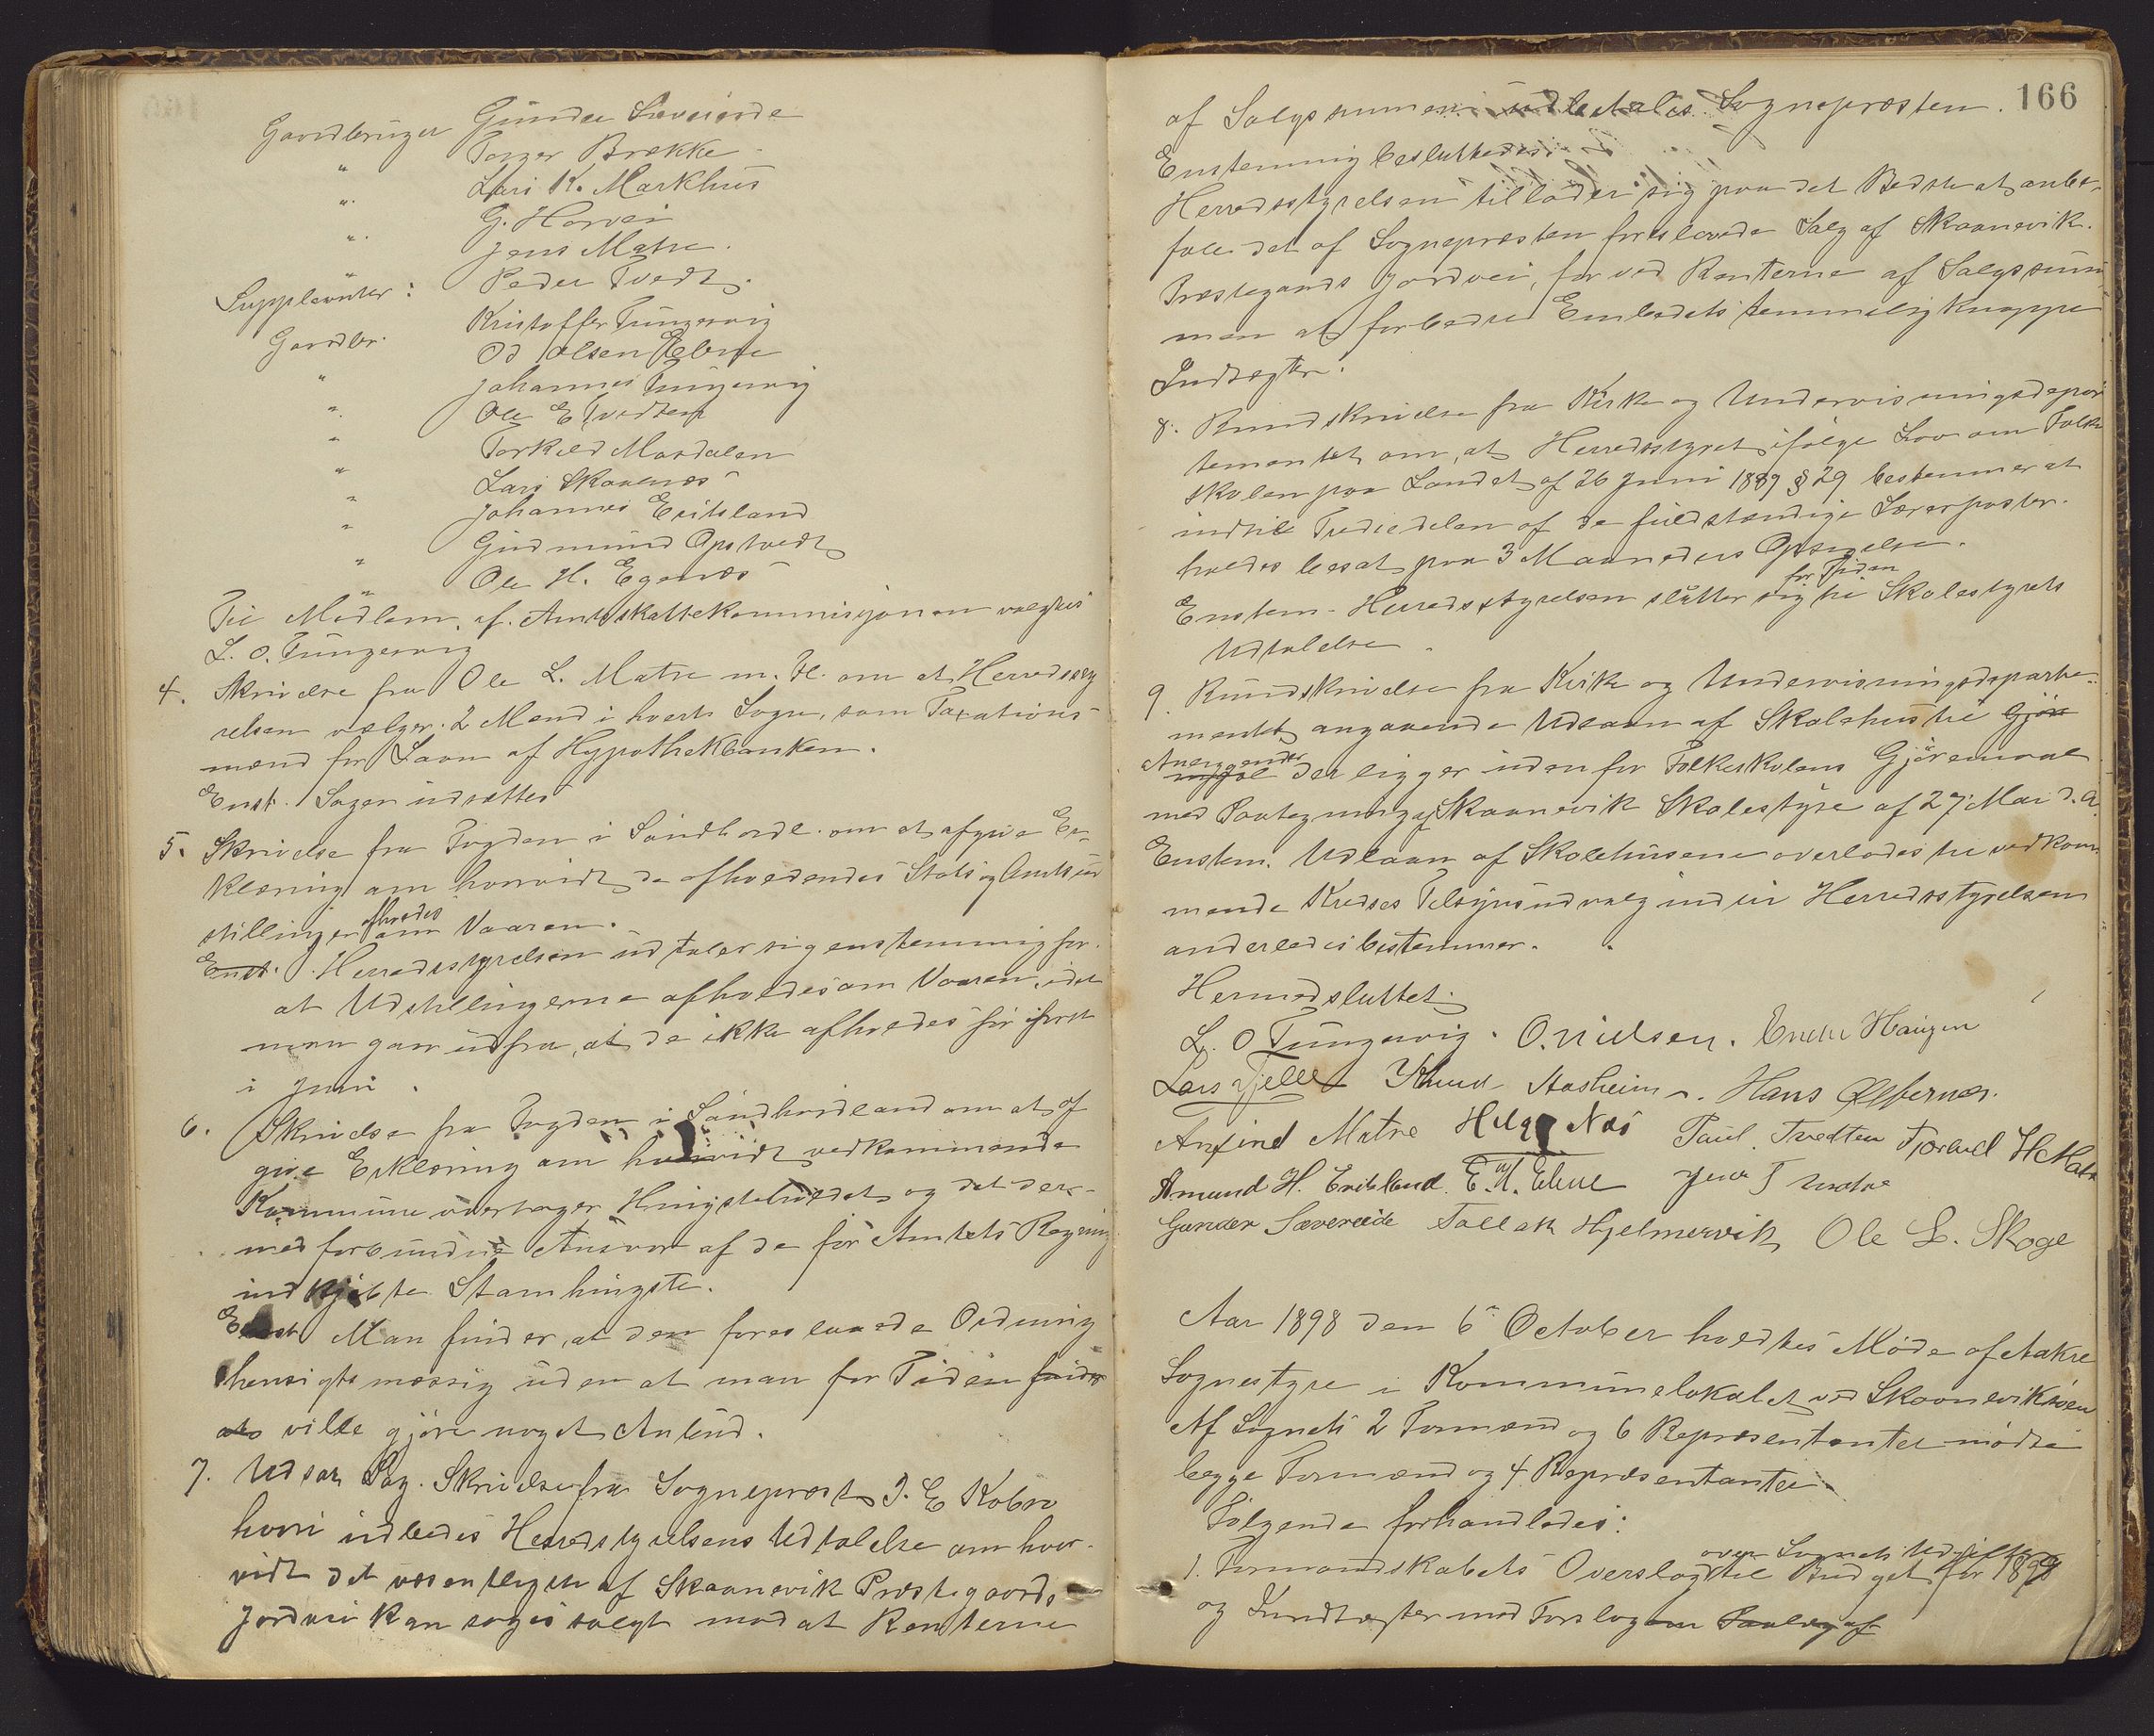 Gaardbruger Gunder Sævereide
" Torger Brekke
" Lars K. Markhus
" G. Horvei
" Jens Matre.
Suppleanter: Peder Tvedt.
Gaardbr. Kristoffer Tungesvig
" Od Olsen Ebne
" Johannes Tungesvig
" Ole E Tvedten
" Torkild Mosdalen
" Lars Skaalnes
" Johannes Eritsland
" Gudmund Opstvedt
" Ole H. Egenæs
Til Medlem af Amtsskattekommissjonen valgtes
L. O. Tungesvig
4. Skrivelse fra Ole L. Matre m. Fl. om at Herredssty
relsen vælger 2 Mænd i hvert Sogn, som Taxations
mænd for Laan af Hypothekbanken.
Enst. Sagen udsættes
5. Skrivelse fra Fogden i Søndhordl. om at afgive Er-
klæring om hvorvidt de afholdendes Stats og Amtsud
stillinger afholdes om Vaaren.
Enst. Herredsstyrelsen udtaler sig enstemmig for
at Udstillingerne afholdes om Vaaren, idet
man gaar ud fra, at de ikke afholdes før først
i Juni.
6. Skrivelse fra Fogden i Søndhordland om at af
give Erklæring om hvorvidt vedkommende
Kommune overtager Hingsteholdet og det der-
med forbundne Ansvar af de for Amtets Regning
indkjøbte Stamhingste.
Enst Man finder, at den foreslaaede Ordning
hensigtsmæssig uden at man for Tiden finder
at ville gjøre noget Anbud.
7. Udsat Sag. Skrivelse fra Sogneprest J. E Kobro
hvori udbedes Herredstyrelsens Udtalelse om hvor-
vidt det væsentligste af Skaanevik Præstegaards
Jordvei kan søges solgt mod at Renterne
166
af Salgssummen udbetales Sognepræsten.
Enstemmig besluttedes:
Herredsstyrelsen tillader sig paa det Bedste at anbe-
fale det af Sognepræsten foreslaaede Salg af Skaanevik
Præstegaards Jordvei, for ved Renterne af Salgssum
men at forbedre Embedets temmelig knappe
Indtægter.
8. Rundskrivelse fra Kirke og Undervisningsdepar
tementet om, at Herredsstyret ifølge Lov om Folke
skolen paa Landet af 26 Juni 1889 § 29 bestemmer at
indtil Trediedelen af de fuldstændige Lærerposter
holdes besat paa 3 Maaneders Opsigelse.
Enstem. Herredsstyrelsen slutter sig for Tiden til Skolestyrets
Udtalelse.
9. Rundskrivelse fra Kirke og Undervisningsdeparte-
mentet angaaende Udlaan af Skolehus til Gjøre
Anliggender der ligger udenfor Folkeskolens Gjøremaal
med Paategning af Skaanevik Skolestyre af 27 Mai d. A.
Enstem. Udlaan af Skolehusene overlades til vedkom-
mende Kredses Tilsynsudvalg indtil Herredsstyrelsen
anderledes bestemmer.
Hermed sluttet.
L. O Tungesvig. O. Nielsen. Endre Haugen
Lars Fjelle Knud Aasheim. Hans Ølfernes.
Anfind Matre Helge Næs Paul Tvedten Torkild H Matre
Amund H. Eritsland E. M. Ebne Jens J Matre
Gunder Sævereide Tollak Hjelmervik Ole L. Skoge
Aar 1898 den 6 October holdtes Møde af Aakre
Sognestyre i Kommunelokalet ved Skaaneviksøen
Af Sognets 2 Formænd og 6 Repræsentanter mødte
begge Formænd og 4 Repræsentanter.
Følgende forhandledes:
1. Formandskabets Overslag til Budget over Sognets Udgifter for 1899
og Indtægter med Forslag om Paalæg af